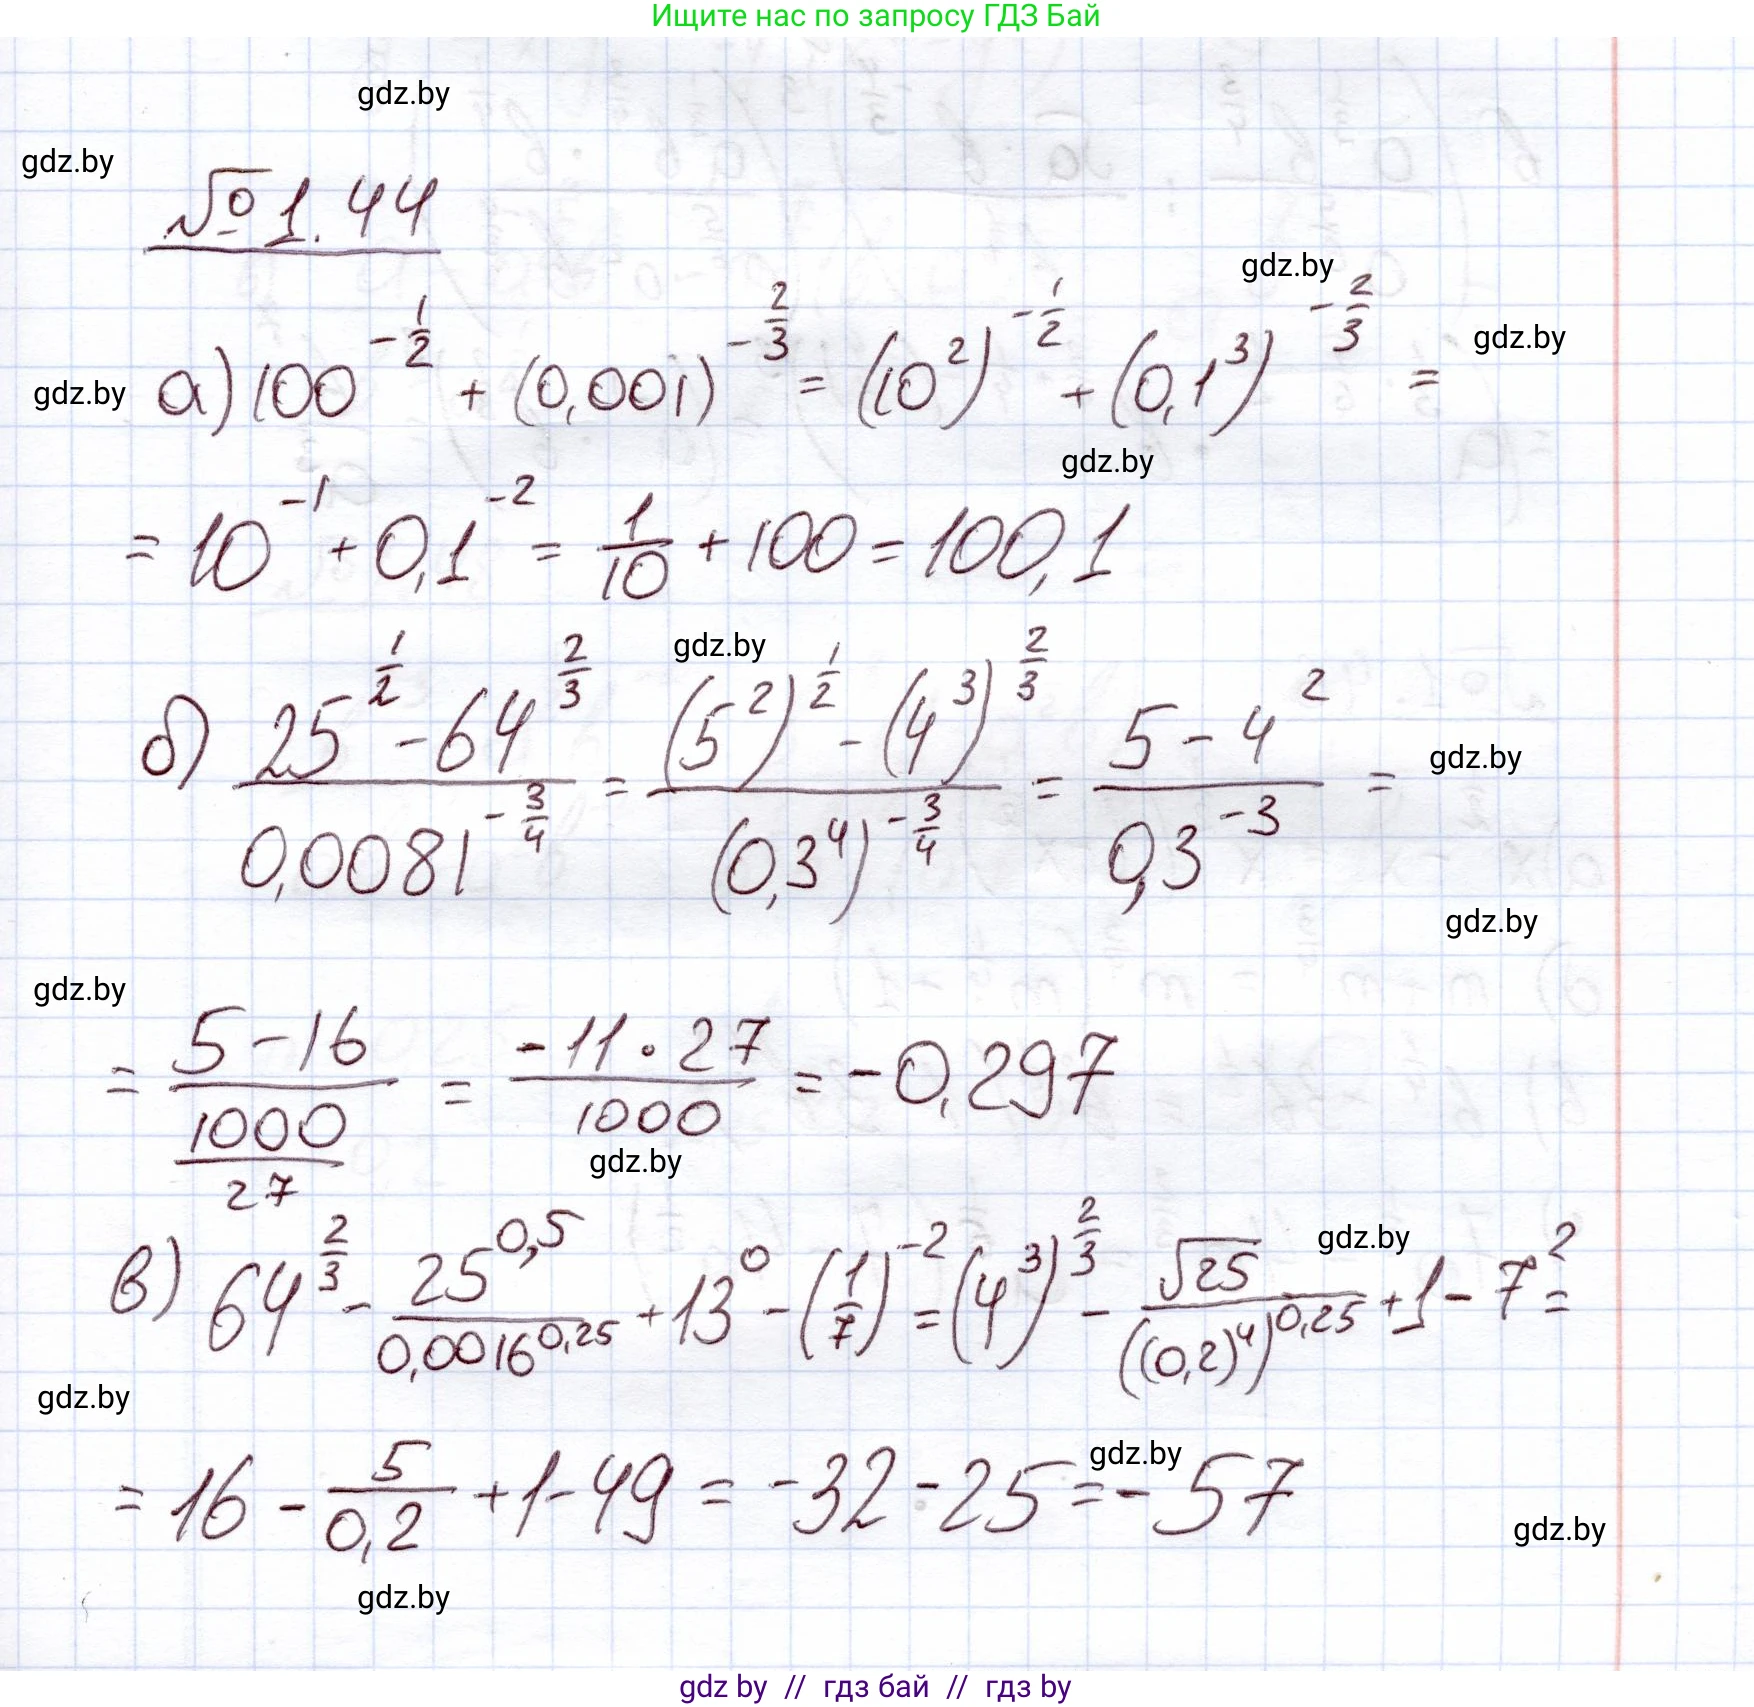 Ищите нас по запросу ГДЗ Бай
gdz.by
gdz.by
№1.44
gdz.by
gdz.by
gdz.by
а) 100^(-1/2) + (0,001)^(-2/3) = (10^2)^(-1/2) + (0,1^3)^(-2/3) =
gdz.by
= 10^(-1) + 0,1^(-2) = 1/10 + 100 = 100,1
gdz.by
б) (25^(1/2) - 64^(2/3))/(0,0081^(-3/4)) = ((5^2)^(1/2) - (4^3)^(2/3))/((0,3^4)^(-3/4)) = (5 - 4^2)/(0,3^(-3)) =
gdz.by
gdz.by
gdz.by
= (5 - 16)/(1000/27) = (-11 · 27)/1000 = -0,297
gdz.by
gdz.by
в) 64^(2/3) - 25^(0,5)/0,0016^(0,25) + 13^0 - (1/7)^(-2) = (4^3)^(2/3) - √25/((0,2)^4)^(0,25) + 1 - 7^2 =
gdz.by
gdz.by
= 16 - 5/0,2 + 1 - 49 = -32 - 25 = -57
gdz.by
gdz.by
gdz by // гдз бай // гдз by